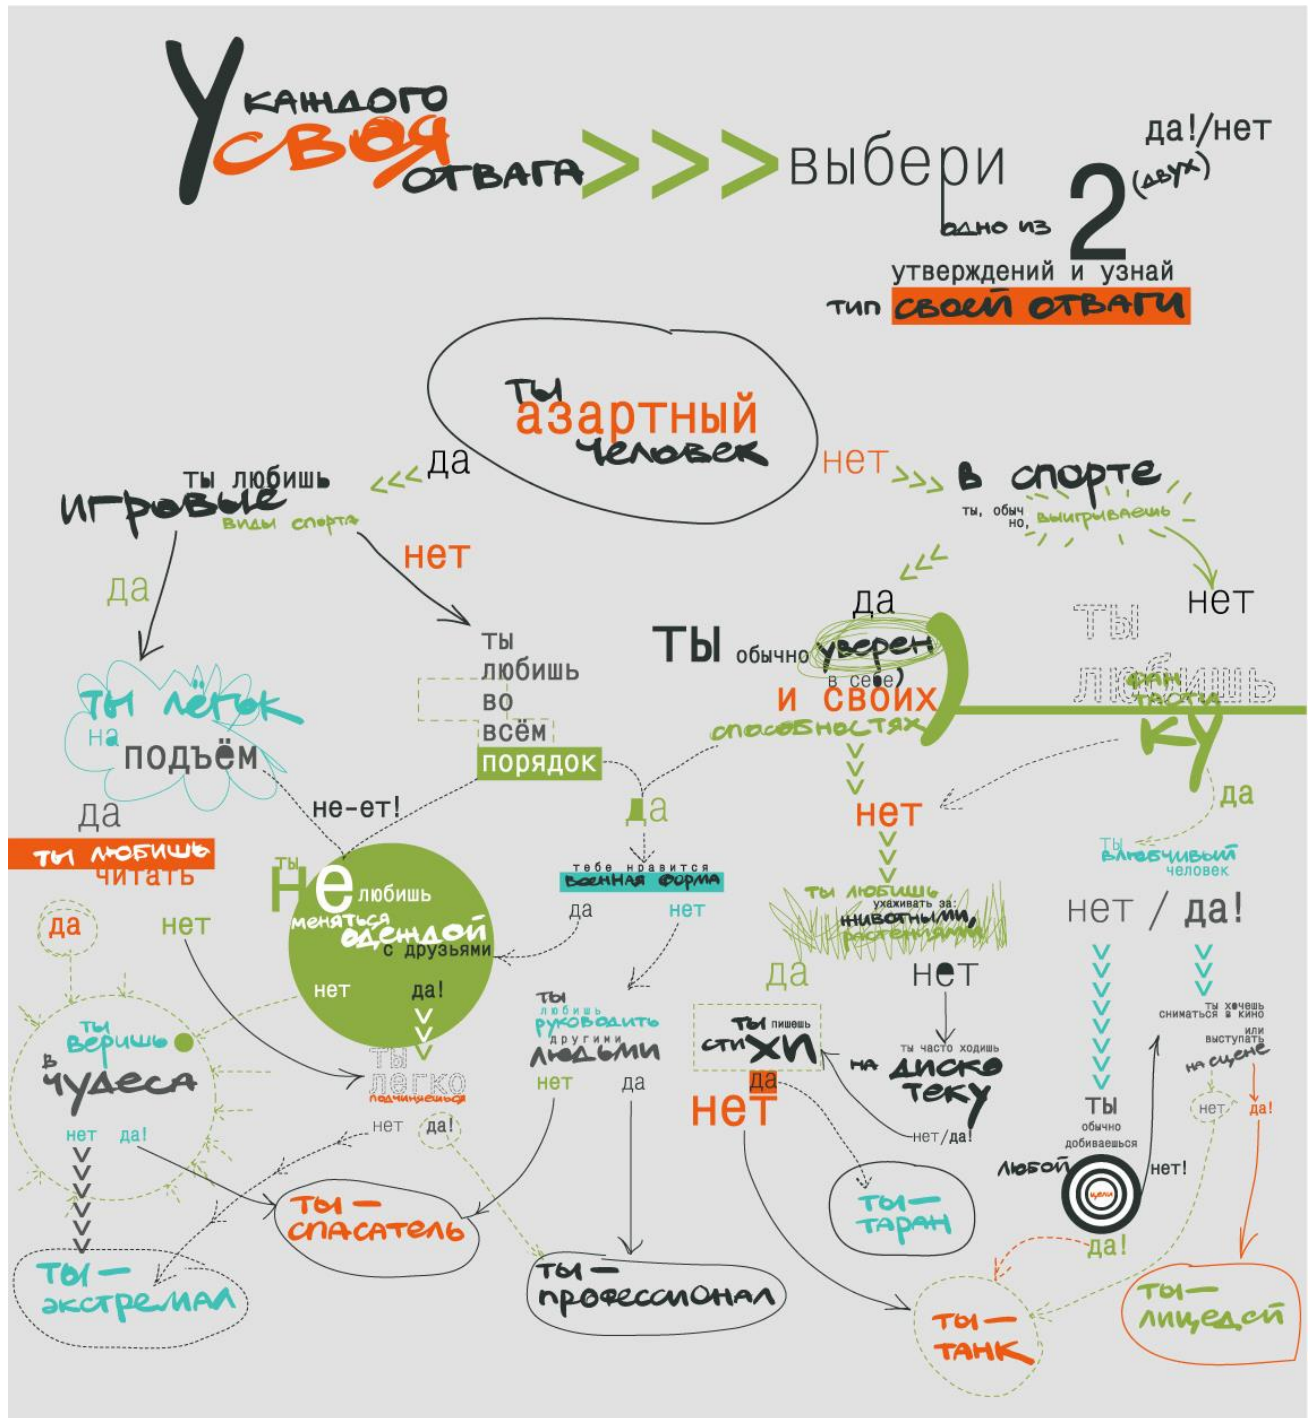 У каждого
своя
отвага >>> выбери
одно из 2 (двух)
да!/нет
утверждений и узнай
тип своей отваги
ты
азартный
человек
да
нет
ты любишь
игровые
виды спорта
в спорте
ты, обыч
но, выигрываешь
да
нет
да
нет
ты лёгок
на
подъём
ты
любишь
во
всём
порядок
ты обычно уверен
в себе)
и своих
способностях
ты
любишь
фан
тасти
ку
да
не-ет!
да
нет
да
ты любишь
читать
да
нет
ты
не любишь
меняться
одеждой
с друзьями
нет
да!
тебе нравится
военная форма
да
нет
ты любишь
ухаживать за:
животными,
растениями
да
нет
ты
влюбчивый
человек
нет / да!
ты
веришь
в
чудеса
нет
да!
ты
легко
подчиняешься
нет
да!
ты
любишь
руководить
другими
людьми
нет
да
ты пишешь
стихи
да
нет
ты часто ходишь
на диско
теку
нет/да!
ты
обычно
добиваешься
любой
цели
нет!
да!
ты хочешь
сниматься в кино
или
выступать
на сцене
нет
да!
ты —
экстремал
ты —
спасатель
ты —
профессионал
ты —
таран
ты —
танк
ты —
лицедей